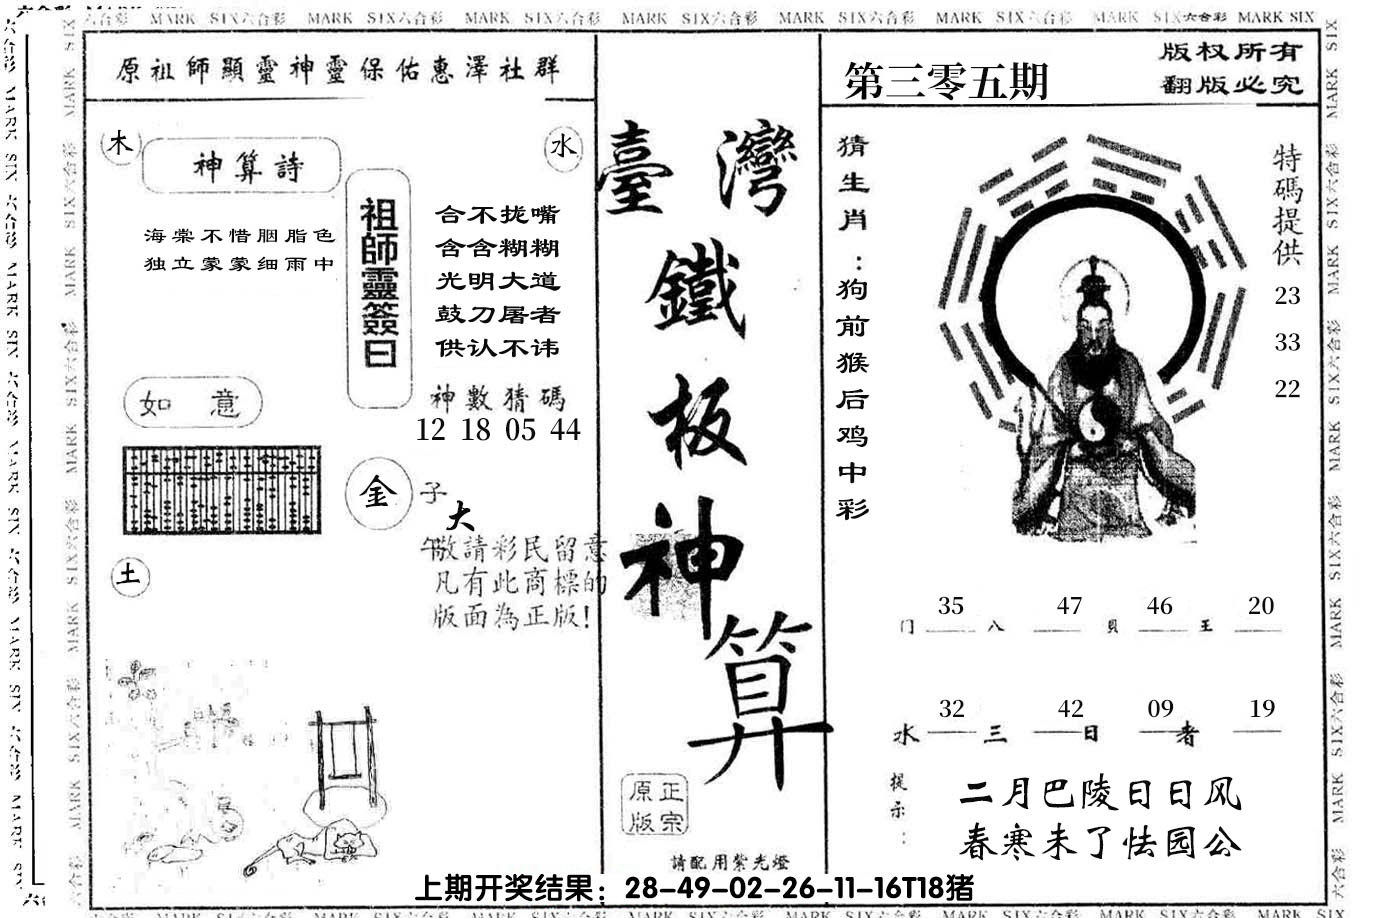 六合彩 MARK SIX六合彩 MARK SIX六合彩 MARK SIX六合彩 MARK SIX六合彩 MARK SIX六合彩 MARK SIX六合彩 MARK SIX六合彩 MARK SIX
原祖師顯靈神靈保佑惠澤社群
木
水
神算詩
海棠不惜胭脂色
独立蒙蒙细雨中
祖師靈簽曰
合不拢嘴
含含糊糊
光明大道
鼓刀屠者
供认不讳
神數猜碼
12 18 05 44
如 意
金
子
大
午
敬請彩民留意
凡有此商標的
版面為正版!
土
臺灣
鐵
板
神
算
正宗
原版
請配用紫光燈
第三零五期
版权所有
翻版必究
猜生肖:狗前猴后鸡中彩
特碼提供
23
33
22
35 47 46 20
门 八 貝 王
32 42 09 19
水 三 日 者
提示:
二月巴陵日日风
春寒未了怯园公
上期开奖结果：28-49-02-26-11-16T18猪